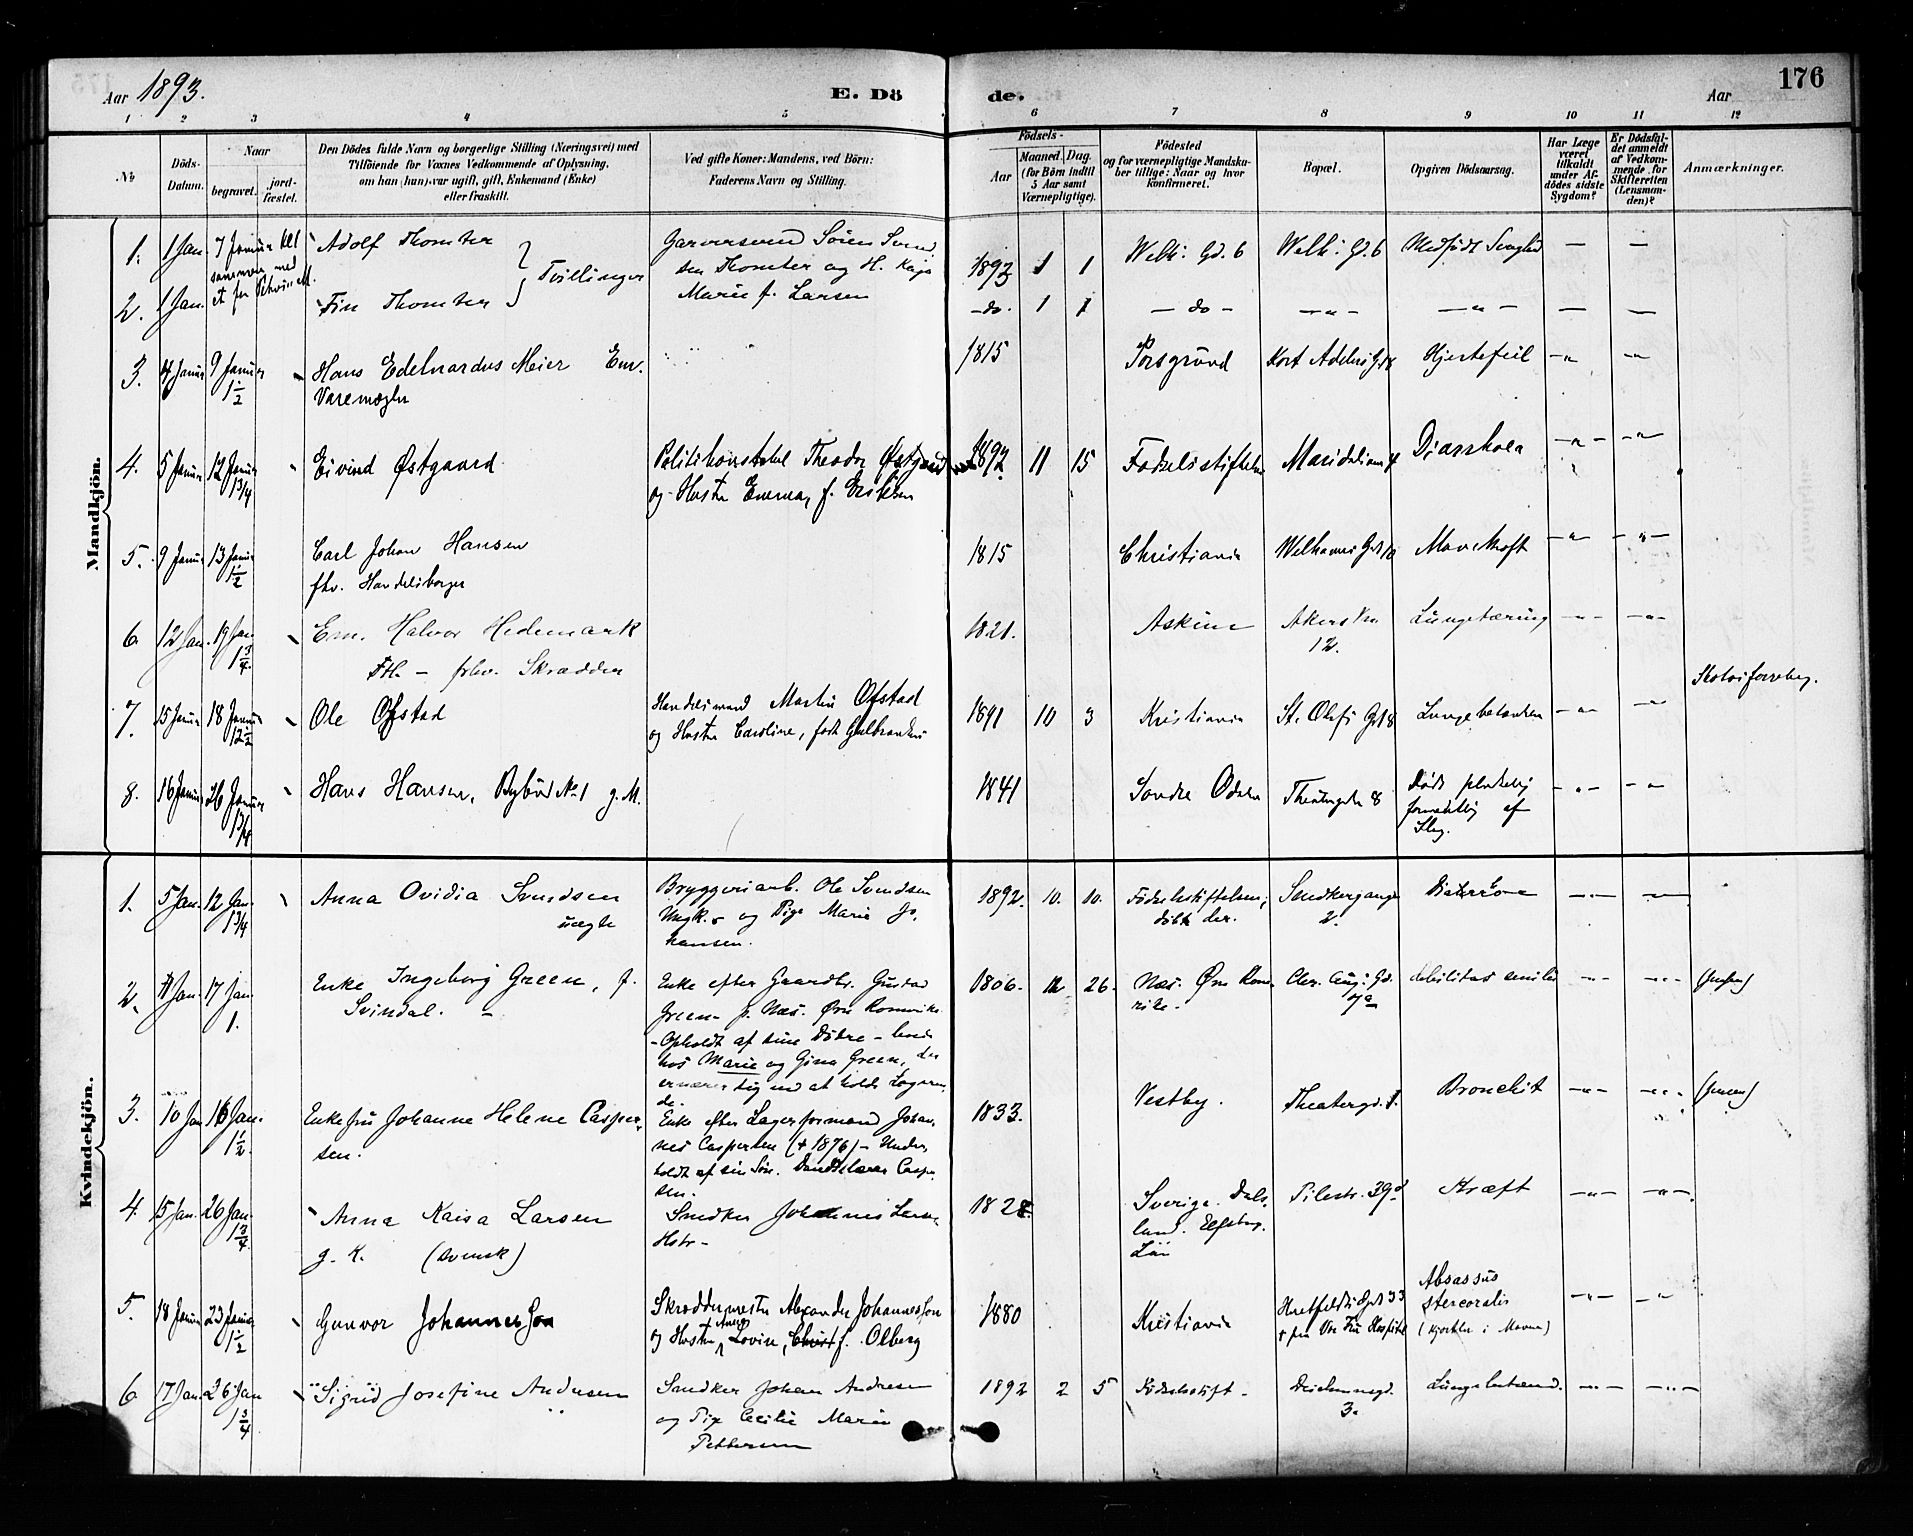 Aar 1893.
E. Dö
de.
Aar
176
1 2 3 4 5 6 7 8 9 10 11 12
No
Döds-Datum.
Naar
begravet.
jord-fæstet.
Den Dödes fulde Navn og borgerlige Stilling (Næringsvei) med
Tilföiende for Voxnes Vedkommende af Oplysning,
om han (hun) var ugift, gift, Enkemand (Enke)
eller fraskilt.
Ved gifte Koner: Mandens, ved Börn:
Faderens Navn og Stilling.
Födsels-
Aar
Maaned. Dag.
(for Börn indtil
5 Aar samt
Værnepligtige).
Födested
og for værnepligtige Mandska-
ber tillige: Naar og hvor
konfirmeret.
Bopæl.
Opgiven Dödsaarsag.
Har Læge
været
tilkaldt
under Af-
dödes sidste
Sygdom?
Er Dödsfal-
det anmeldt
af Vedkom-
mende for
Skifteretten
(Lensman-
den)?
Anmærkninger.
Mandkjön.
1. 1 Jan. 7 Januar
sammen med
Adolf Thomter
Tvillinger
Garversvend Sören Svend
sen Thomter og H. Kaja
Marie f. Larsen
1893 1 1 Welh: Gd. 6 Welh: Gd. 6 Medfødt Svaghed — —
2. 1 Jan. Fin Thomter
do. 1 1 — do — — " — — " — — —
3. 4 Januar 9 Januar 1½ Hans Edelvardus Meier Em.
Varemægler
1815 Porsgrund Kort Adelers Gd 8 Hjertefeil — " — "
4. 5 Januar 12 Januar 1¾ Eivind Østgaard
Politikonstabel Theodor Østgaard
og Hustru Emma, f. Eriksen
1892 11 15 Fødselsstiftelsen Maridalsven 4 Diarrhoea — " — — " —
5. 9 Januar 13 Januar 1½ Carl Johan Hansen
fhv. Handelsborger
1815 Christiania Welhavens Gd 10 Mavekræft — " — — " —
6. 12 Jan. 19 Jan. 1¾ Em. Halvor Hedemark
FH. — forhv. Skrædder
1821. Askim Akersvn
12.
Lungetæring — " — — " —
7. 15 Januar 18 Januar 12½ Ole Ofstad
Handelsmand Martin Ofstad
og Hustru Caroline, født Gulbrandsen
1891 10 3 Kristiania St. Olafs Gd 8 Lungebetændelse — " — — " —
8. 16 Januar 26 Januar 1¾ Hans Hansen, Bybud No 1 g. M.
1841 Søndre Odalen Theatergaden 8 Døde pludselig
formentlig af
Slag.
— " — — " —
Kvindekjön.
1. 5 Jan. 12 Jan. 1¾ Anna Ovidia Svendsen
uægte
Bryggeriarb. Ole Svendsen
Ungk. og Pige Marie Jo-
hansen.
1892. 10. 10. Fødselsstiftelsen,
døbt der.
Smedkergangen
2.
Diarrhoe — " — — " —
2. 11 Jan. 17 Jan. 1. Enke Ingeborg Green, f.
Svindal.
Enke efter Gaardbr. Gustav
Green — p. Næs. Øvre Romerike
— Opholdt af sine Døtre — boede
hos Marie og Gina Green, der
ernærer sig ved at holde Logeren-
de.
1806. 12 26. Næs. Øvre Rom-
rike.
Chr. Aug: Gd.
17a
debilitas senilis — " — — " —
3. 10 Jan 16 Jan. 1½. Enkefru Johanne Helene Casper-
sen.
Enke efter Lagerformand Johan-
nes Caspersen (+ 1876) — Under-
holdt af sin Søn. Dandselærer Casper-
sen.
1833. Vestby. Theatergd. 1. Bronchit — " — — " —
4. 15 Jan. 26 Jan. 1¾ Anna Kaisa Larsen
g. K. (svensk)
Smedker Johannes Larsens
Hstr —
1828. Sverige. Dals-
land. Elfsborg.
Län
Pilestr. 39d Kræft — " — — " —
5. 18 Januar 23 Januar 1½ Gunvor Johannesson
Skræddermester Alexander Johannesson
og Hustru Lovise, f. Olberg
1880 Kristiania
+ paa Vor Frue Hospital
Absassus
stercoralis
— " — — " —
6. 17 Jan. 26 Jan 1¾ Sigrid Josefine Andresen
Smedker Johan Andresen
og Pige Cecilie Marie
Pettersen
1892 2 5 Fødselsstift — Deichmansgd.
3.
Lungebetænd. — " — — " —